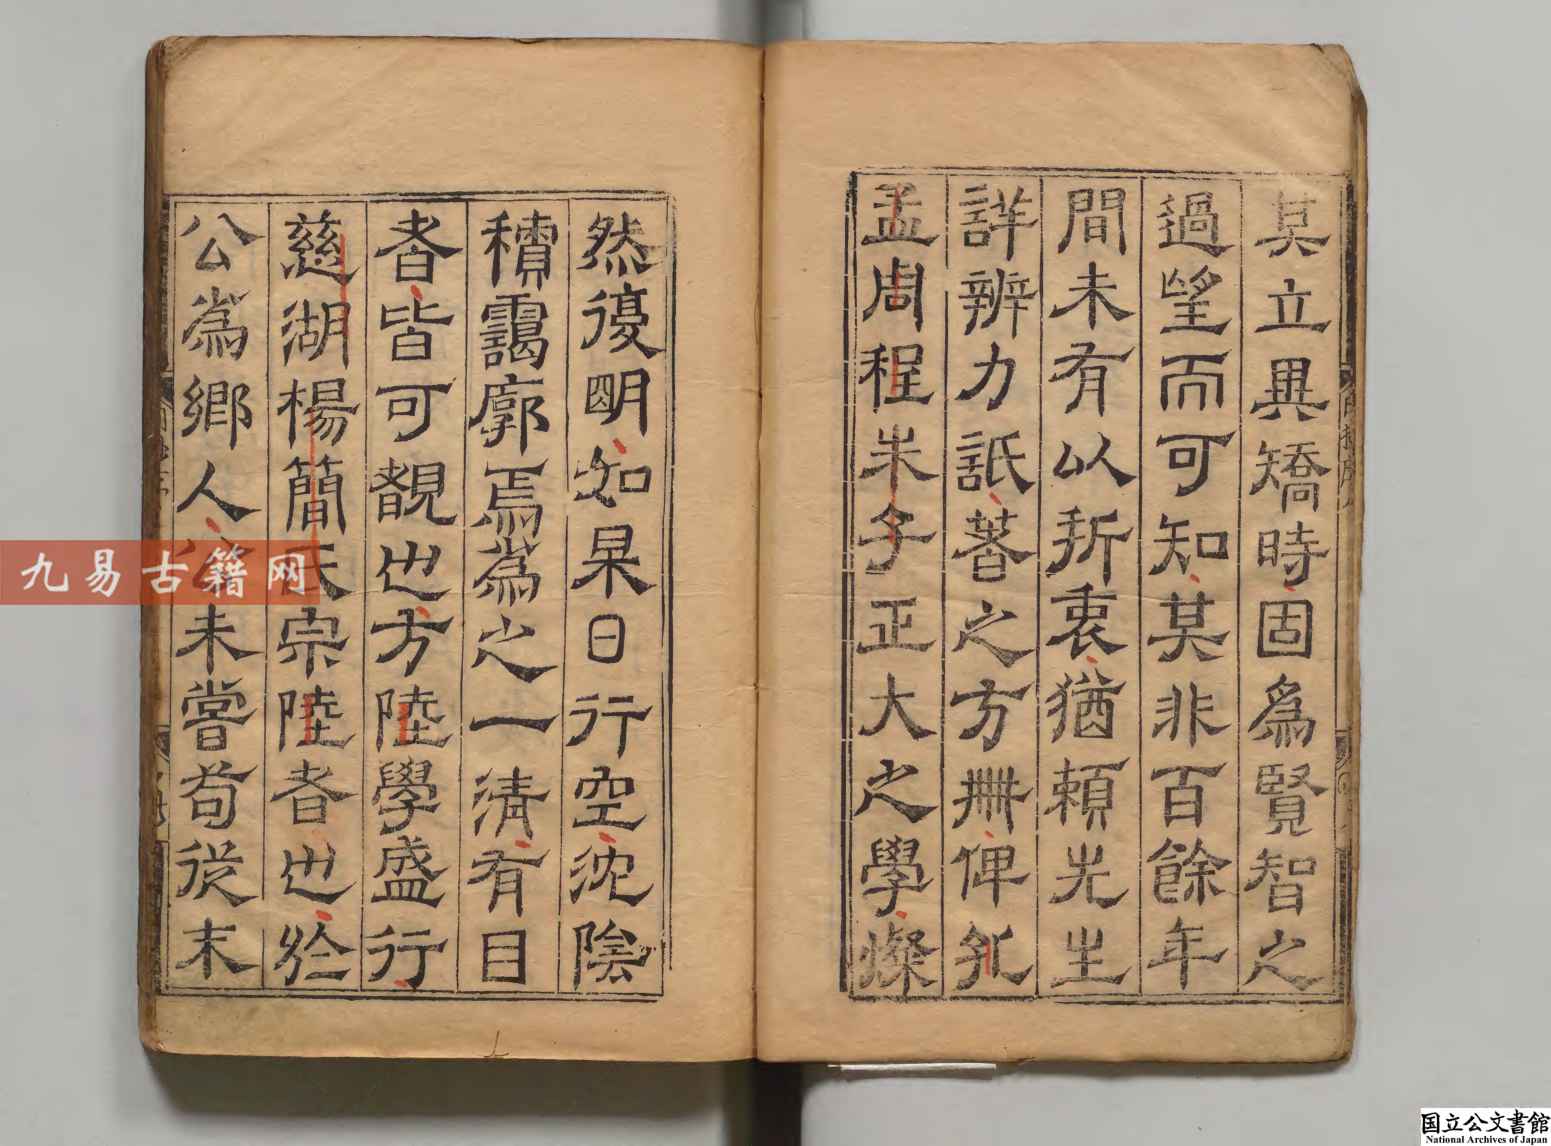 莫立異矯時固爲賢智之
過望而可知莫非百餘年
間未有以折衷猶賴先生
詳辨力詆著之方冊俾孔
孟周程朱子正大之學燦
然復明如杲日行空沈陰
積靄廓焉爲之一清有目
者皆可覩也方陸學盛行
慈湖楊簡氏宗陸者也於
公爲鄉人公未嘗苟從末
九易古籍网
国立公文書館
National Archives of Japan